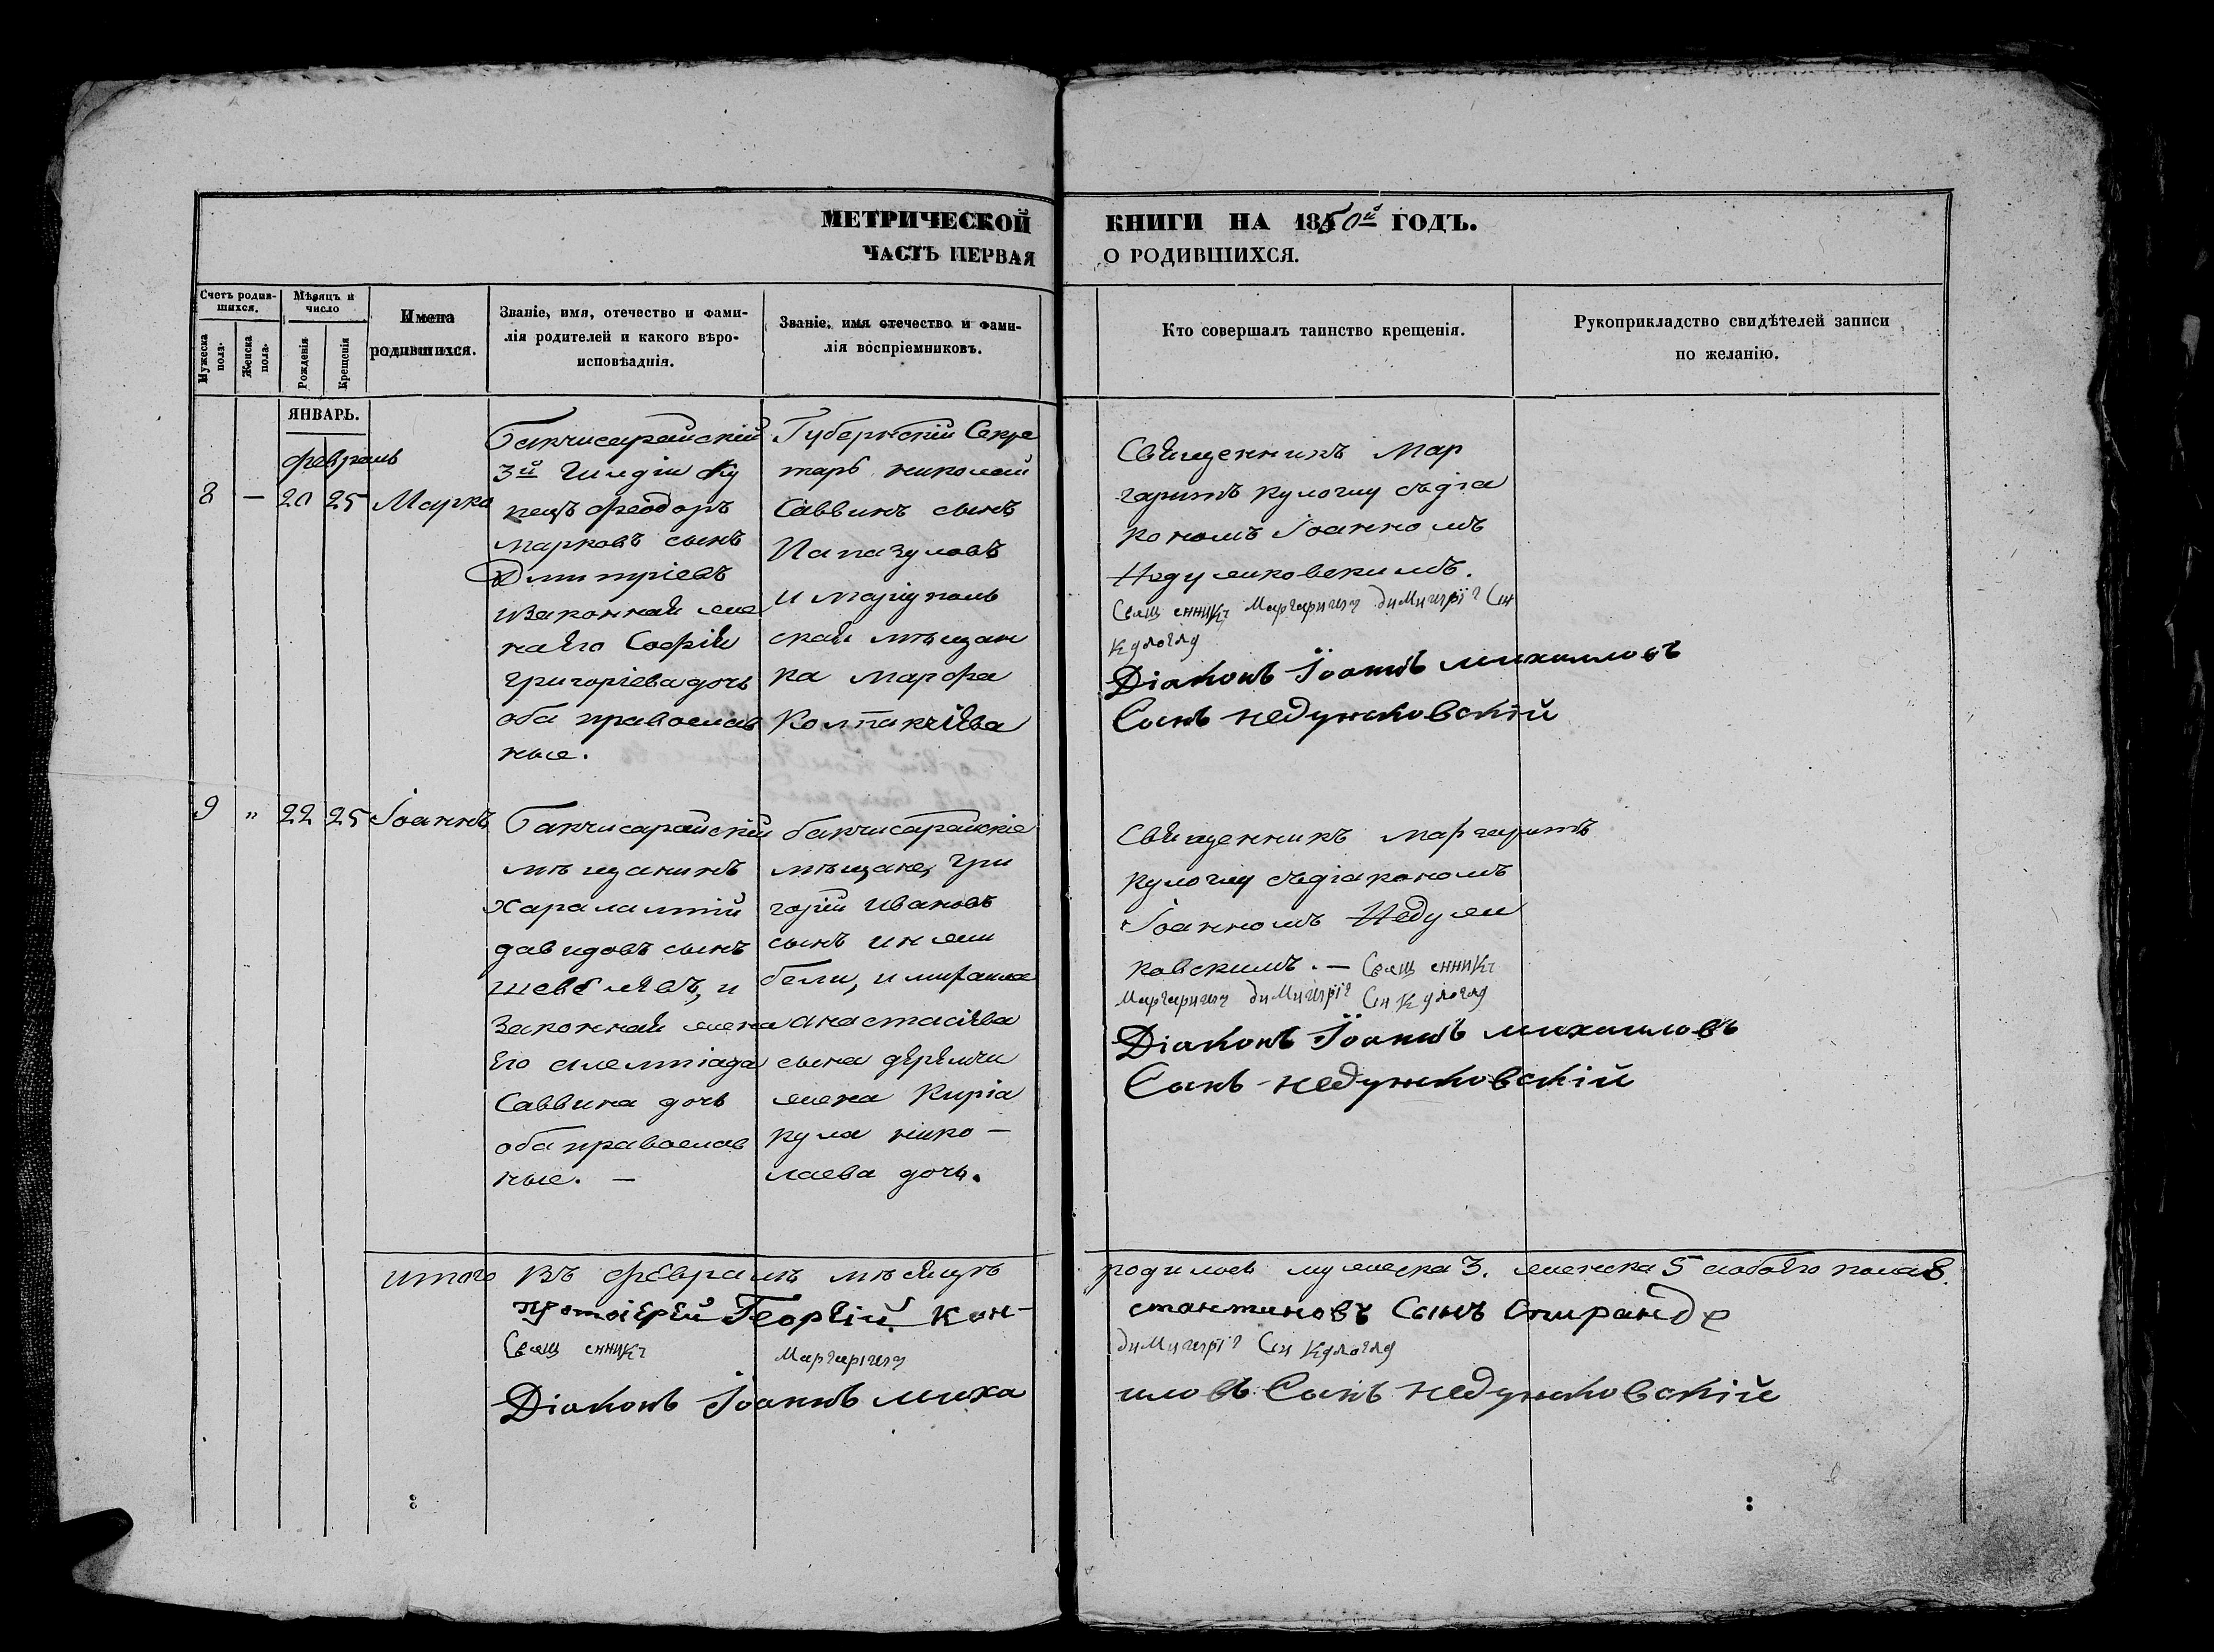 МЕТРИЧЕСКОЙ КНИГИ НА 1850й ГОДЪ.
ЧАСТЬ ПЕРВАЯ О РОДИВШИХСЯ.
Счетъ родив-
шихся.
Мужеска
пола.
Женска
пола.
Мѣсяцъ и
число
Рожденія.
Крещенія
Имена
родившихся.
Званіе, имя, отечество и фами-
лія родителей и какого вѣро-
исповѣаднія.
Званіе, имя отечество и фами-
лія воспріемниковъ.
Кто совершалъ таинство крещенія.
Рукоприкладство свидѣтелей записи
по желанію.
ЯНВАРЬ.
февраль
8 — 20 25 Марко
бакчисарайскій
3й Гилдіи Ку
пецъ феодоръ
марковъ сынъ
Дмитріевъ
изаконная же
на его Софія
григоріева дочь
оба православ
ные.
Губернскій Секре
тарь николай
Саввинъ сынъ
Папазуловъ
и маріуполь
ская мѣщан
ка марфа
Колпакчіева
Священникъ Мар
гаритъ кулоглу съдіа
кономъ Іоанномъ
Недужковскимъ.
Священникъ Маргаритъ димитріт Син
Кулоглу
Діаконъ Іоаннъ михаиловъ
Сынъ недужковскій
9 " 22 25 Іоаннъ
бакчисарайскій
мѣщанинъ
харалампій
давидовъ сынъ
шевблевъ, и
Законная жена
Его олемпіада
Саввина дочь
оба православ
ные. —
бакчисарайскіе
мѣщане, гри
горій Ивановъ
сынъ инжи
бели, и
анастасіева
сына
жена Киріа
кула нико—
лаева дочь.
Священникъ маргаритъ
кулоглу съдіакономъ
Іоанномъ Недуж
ковскимъ. — Священникъ
Маргаритъ димитріт Син Кулоглу
Діаконъ Іоаннъ михаиловъ
Сынъ недужковскій
итого Въ февралѣ мѣсяцѣ родилось мужеска 3. женска 5 иобоего пола 8.
протоіерей Георгій Кон-стантиновъ Сынъ Спиранде
Священникъ Маргаритъ димитріт Син Кулоглу
Діаконъ Іоаннъ миха иловъ Сынъ недужковскій